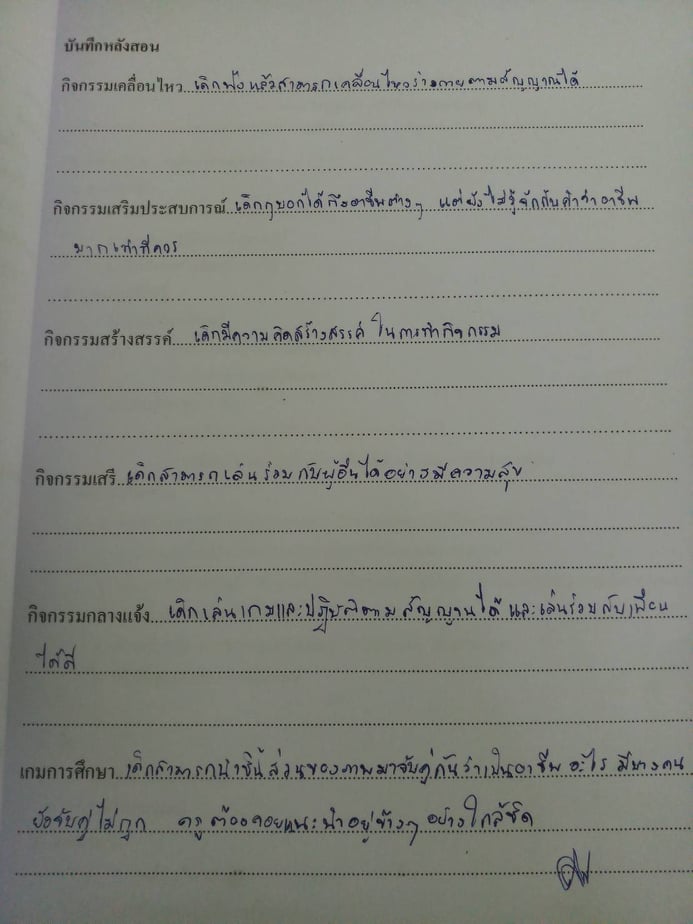 บันทึกหลังสอน
กิจกรรมเคลื่อนไหว เด็กฟังแล้วสามารถเคลื่อนไหวร่างกายตามสัญญาณได้
กิจกรรมเสริมประสบการณ์ เด็กๆบอกได้ถึงอาชีพต่างๆ แต่ยังไม่รู้จักกับคำว่าอาชีพ
มากเท่าที่ควร
กิจกรรมสร้างสรรค์ เด็กมีความคิดสร้างสรรค์ ในการทำกิจกรรม
กิจกรรมเสรี เด็กสามารถเล่นร่วมกับผู้อื่นได้อย่างมีความสุข
กิจกรรมกลางแจ้ง เด็กเล่นเกมและปฏิบัติตามสัญญานได้ และเล่นร่วมกับเพื่อน
ได้ดี
เกมการศึกษา เด็กสามารถนำชิ้นส่วนของภาพมาจับคู่กันว่าเป็นอาชีพ อะไร มีบางคน
ยังจับคู่ไม่ถูก ครูต้องคอยแนะนำอยู่ข้างๆ อย่างใกล้ชิด